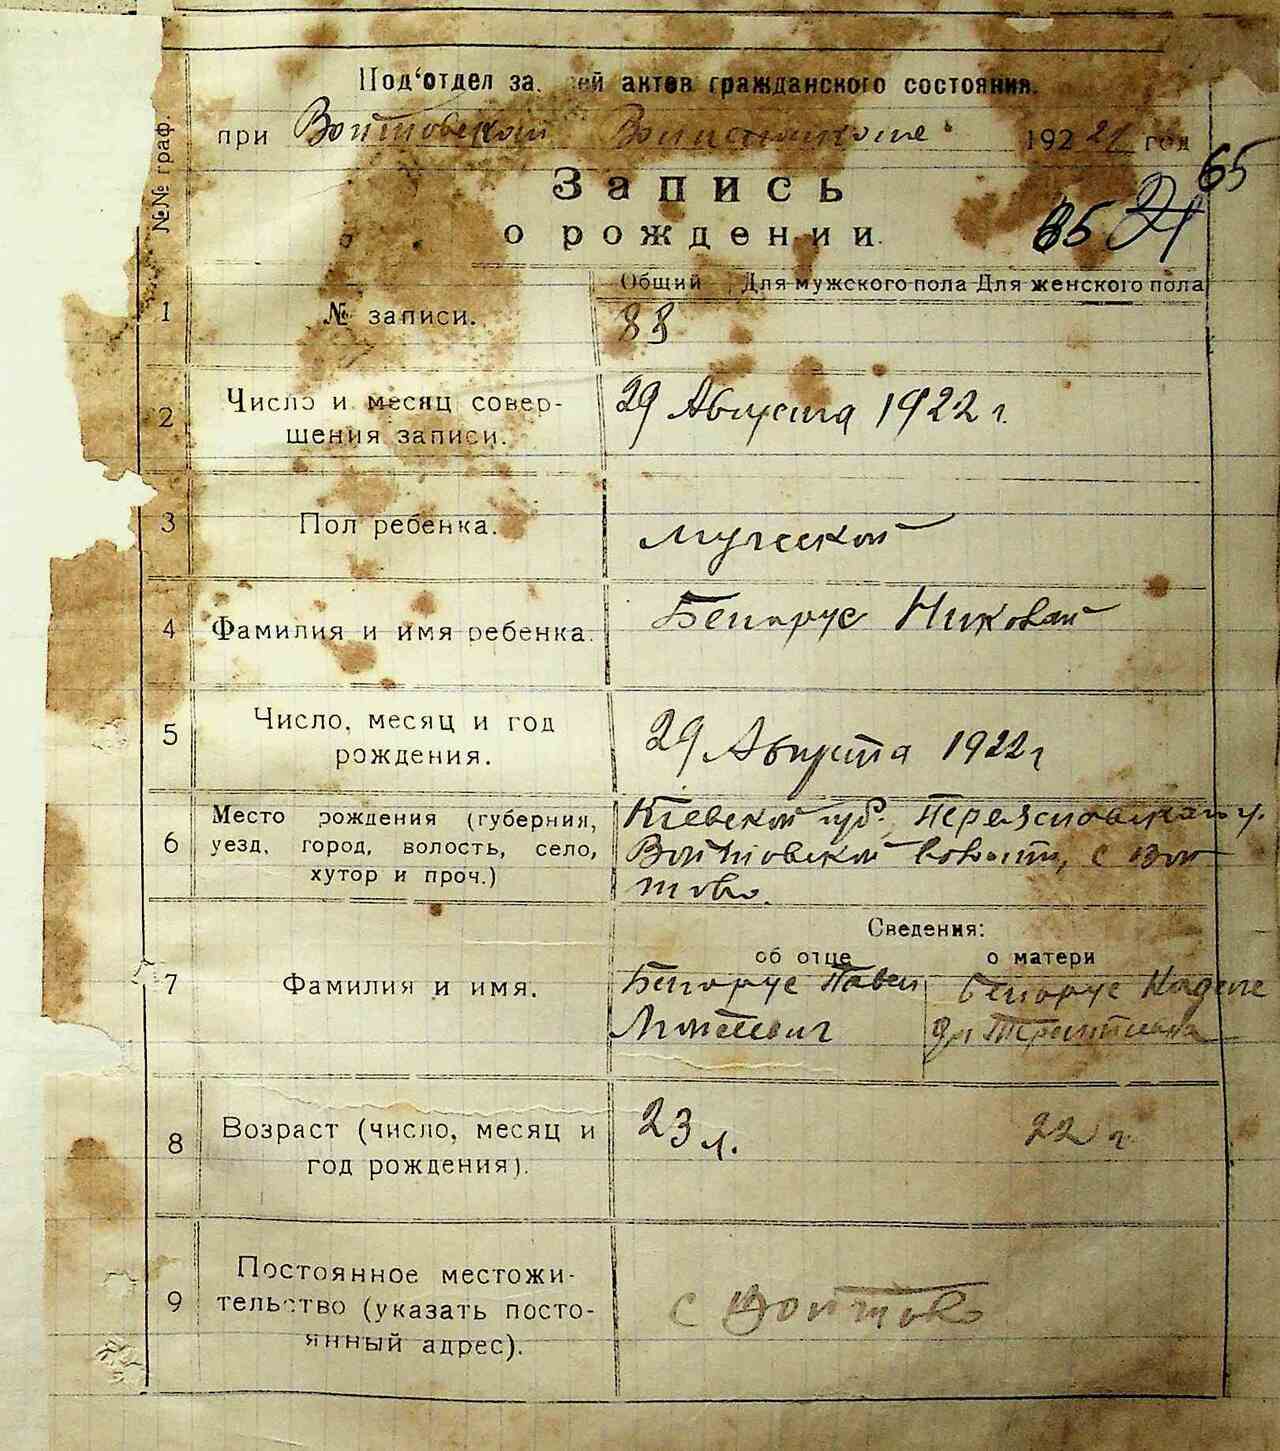 Под'отдел за. ей актов гражданского состояния.
при Войтовском Волисполкоме 1922 год
№№ граф.
Запись
о рождении.
65
85 21
Общий Для мужского пола Для женского пола
1 № записи. 88
2 Число и месяц совер-
шения записи.
29 Августа 1922 г.
3 Пол ребенка. мужской
4 Фамилия и имя ребенка. Белорус Николай
5 Число, месяц и год
рождения.
29 Августа 1922 г
6 Место рождения (губерния,
уезд, город, волость, село,
хутор и проч.)
Киевской губ. Переяславского у.
Войтовской волости, с Вой
тово.
Сведения:
об отце о матери
7 Фамилия и имя.
Белорус Павел
Моисеевич
Белорус
8 Возраст (число, месяц и
год рождения).
23 л. 22 г.
9 Постоянное местожи-
тельство (указать посто-
янный адрес).
с Войтово